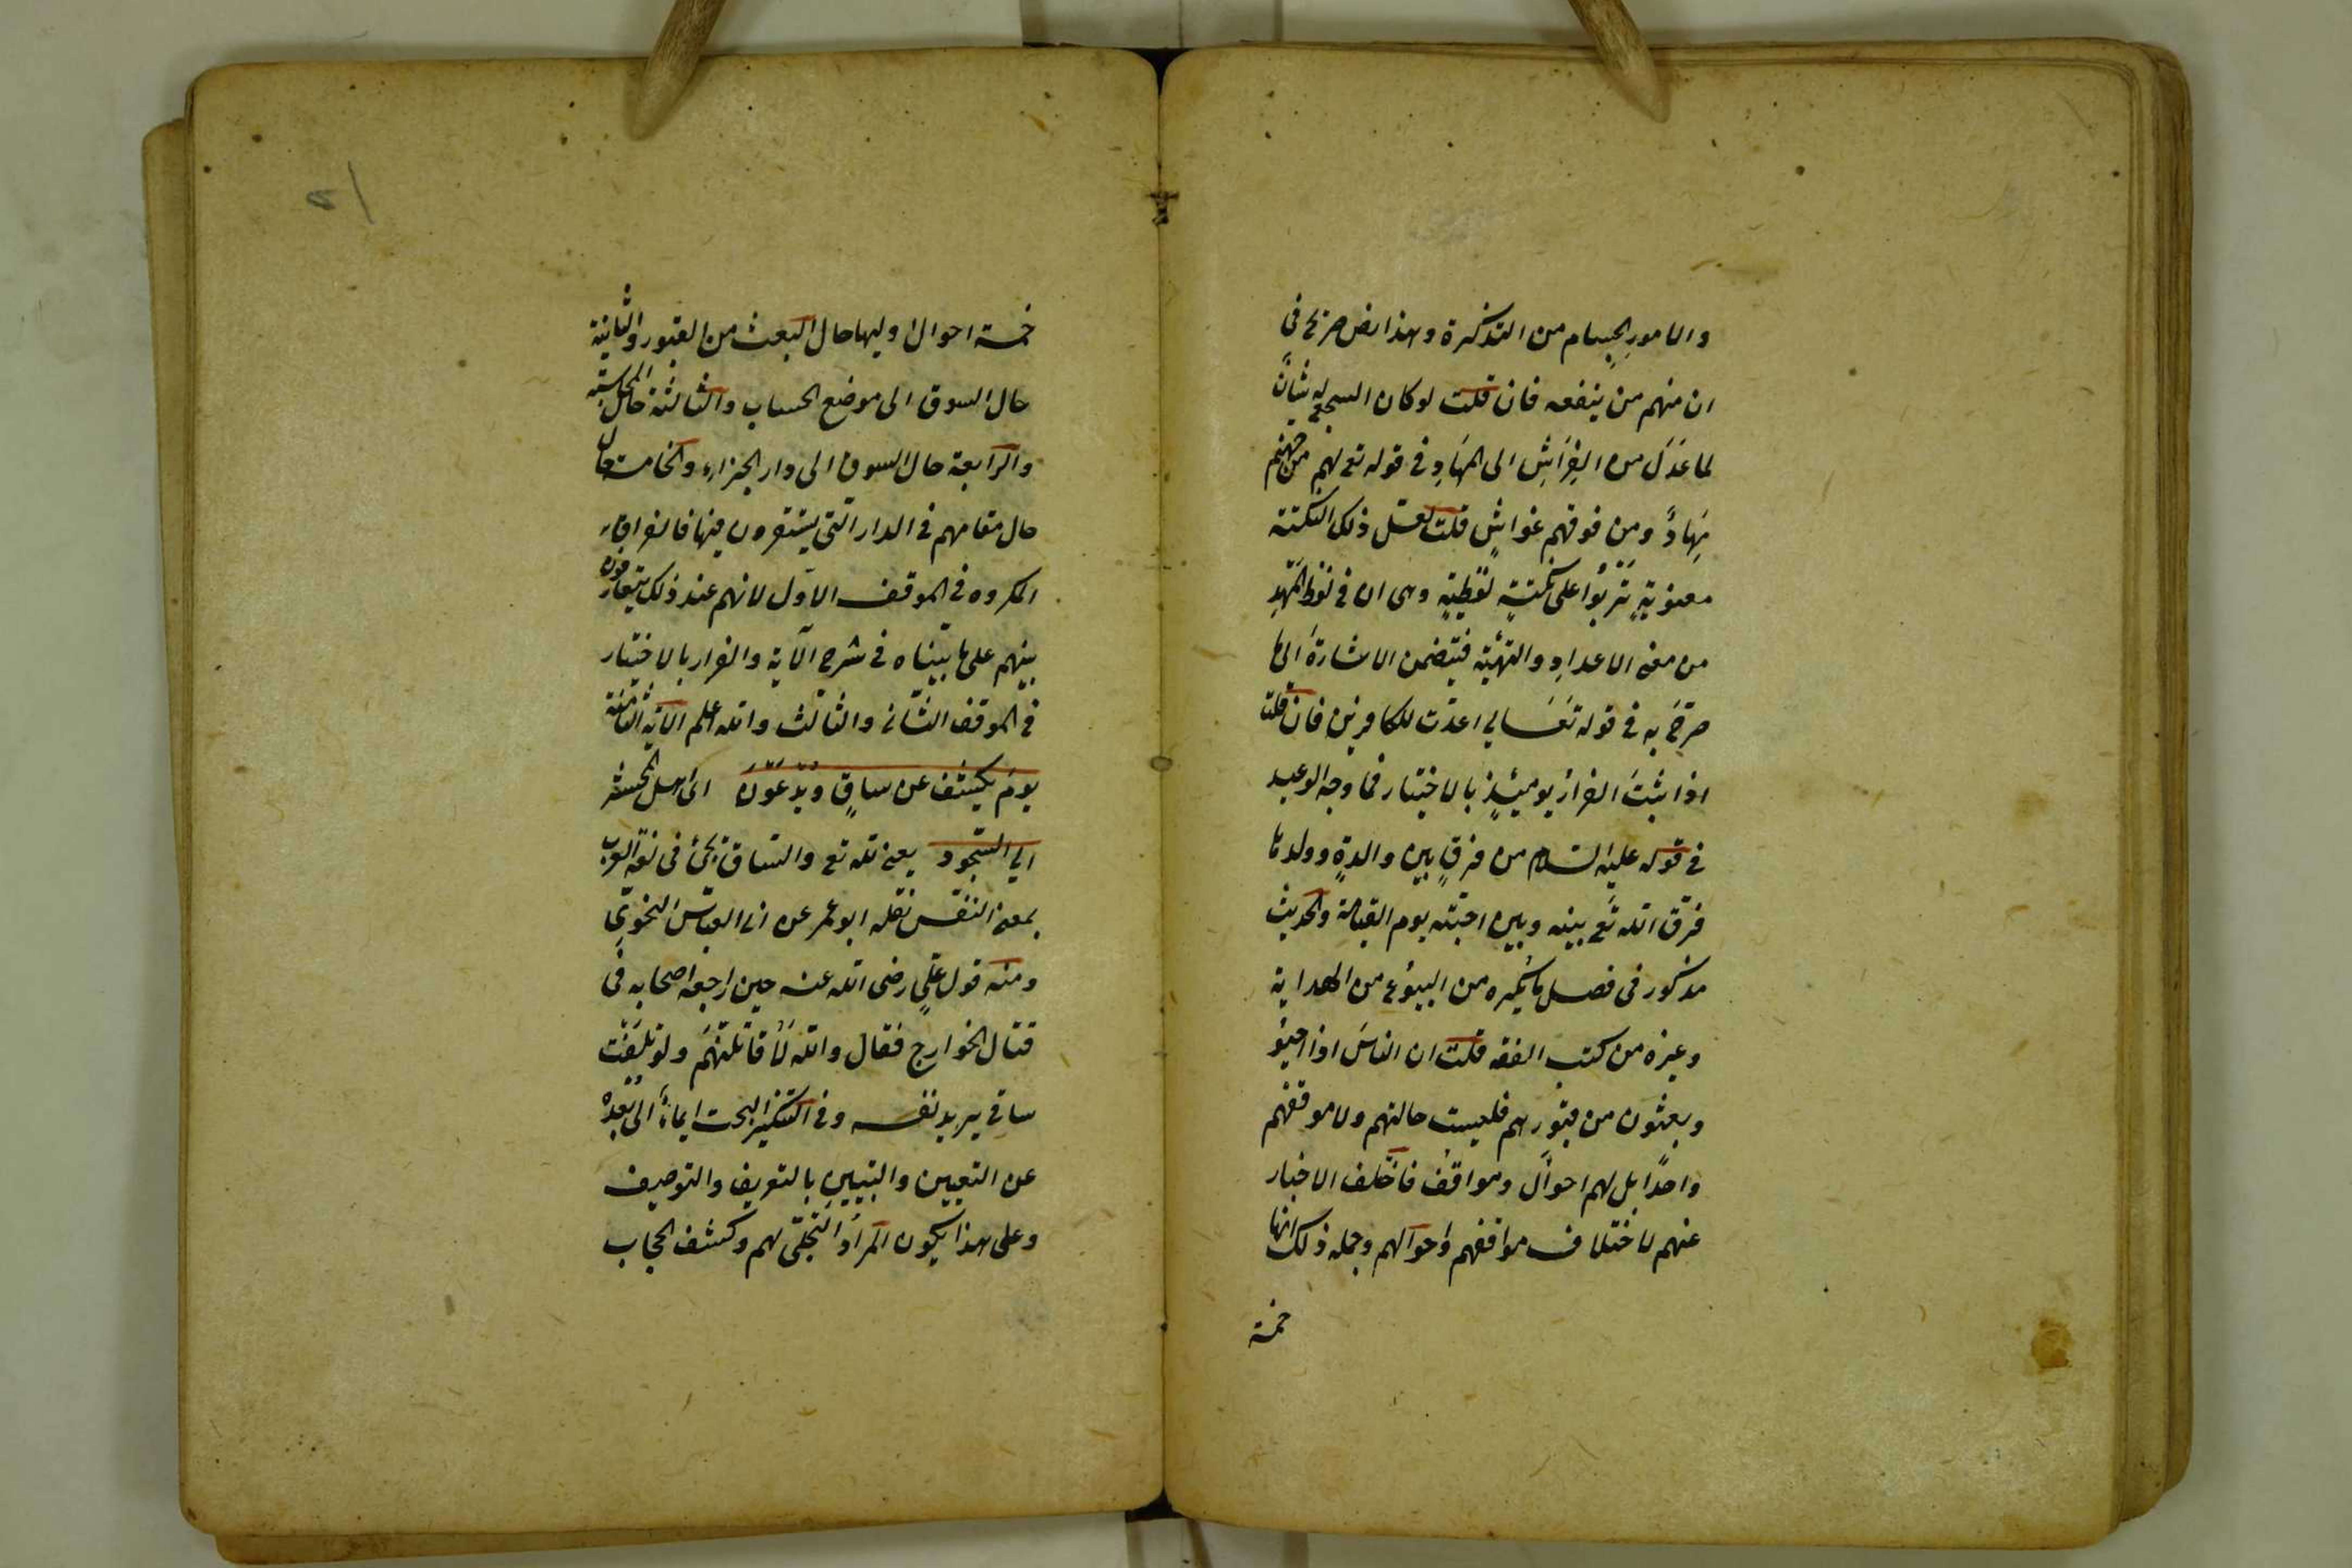 والامور الجسام من التذكرة وهذا نص صريح فى
ان منهم من ينفعه فان قلت لو كان السجع له شأنٌ
لما عَدَلَ من الفِرَاشِ الى المِهَادِ فى قوله تع لهم من جهنم
مِهَادٌ ومن فوقهم غواشٍ قلت لعل ذلك النكتة
معنويةٍ تَرْبُوا على نكتةٍ لفظيةٍ وهى ان فى لفظ المهد
من معنى الاعدادِ والتهيئة فيتضمن الاشارةَ الى ما
صرّح به فى قوله تعالى اعدّت للكافرين فان قلت
اذا ثبتَ الفرارُ يومئذٍ بالاختيار فما وجه الوعيد
فى قوله عليه السلام من فرق بين والدةٍ وولدها
فرّق الله تع بينه وبين احبته يوم القيامة والحديث
مذكور فى فصل ما يكره من البيوع من الهداية
وغيره من كتب الفقه قلت ان الناسَ اذا احيوُ
وبعثون من قبورهم فليست حالتهم ولا موقفهم
واحدًا بل لهم احوالٌ ومواقفُ فاختلف الاخبار
عنهم لاختلاف مواقفهم واحوالهم وجملة ذلك انها
خمسة
خمسة احوال اوليها حال البعث من القبور والثانية
حال السوق الى موضع الحساب والثالثة حال المحاسبة
والرابعة حال السوق الى دار الجزاء والخامسة حال
حال مقامهم فى الدار التى يستقرون فيها فالفراق
المكروه فى الموقف الاول لانهم عند ذلك يتعارفون
بينهم على ما بيّناه فى شرح الآية والفرار بالاختيار
فى الموقف الثانى والثالث والله اعلم الآية الثامنة
يومَ يكشف عن ساقٍ ويُدْعَوْنَ اى اهل المحشر
الى السجود يعنى لله تع والساق يجئ فى لغة العرب
بمعنى النفس نقله ابو عمر عن ابى العباس النحوى
ومنه قول علي رضى الله عنه حين راجعه اصحابه فى
قتال الخوارج فقال والله لَأُقاتلنّهم ولو تلفت
ساقى يريد نفسه وفى التنكير البحت ايماءٌ الى بُعْدِه
عن التعيين والتبيين بالتعريف والتوصيف
وعلى هذا يكون المراد التجلّى لهم وكشف الحجاب